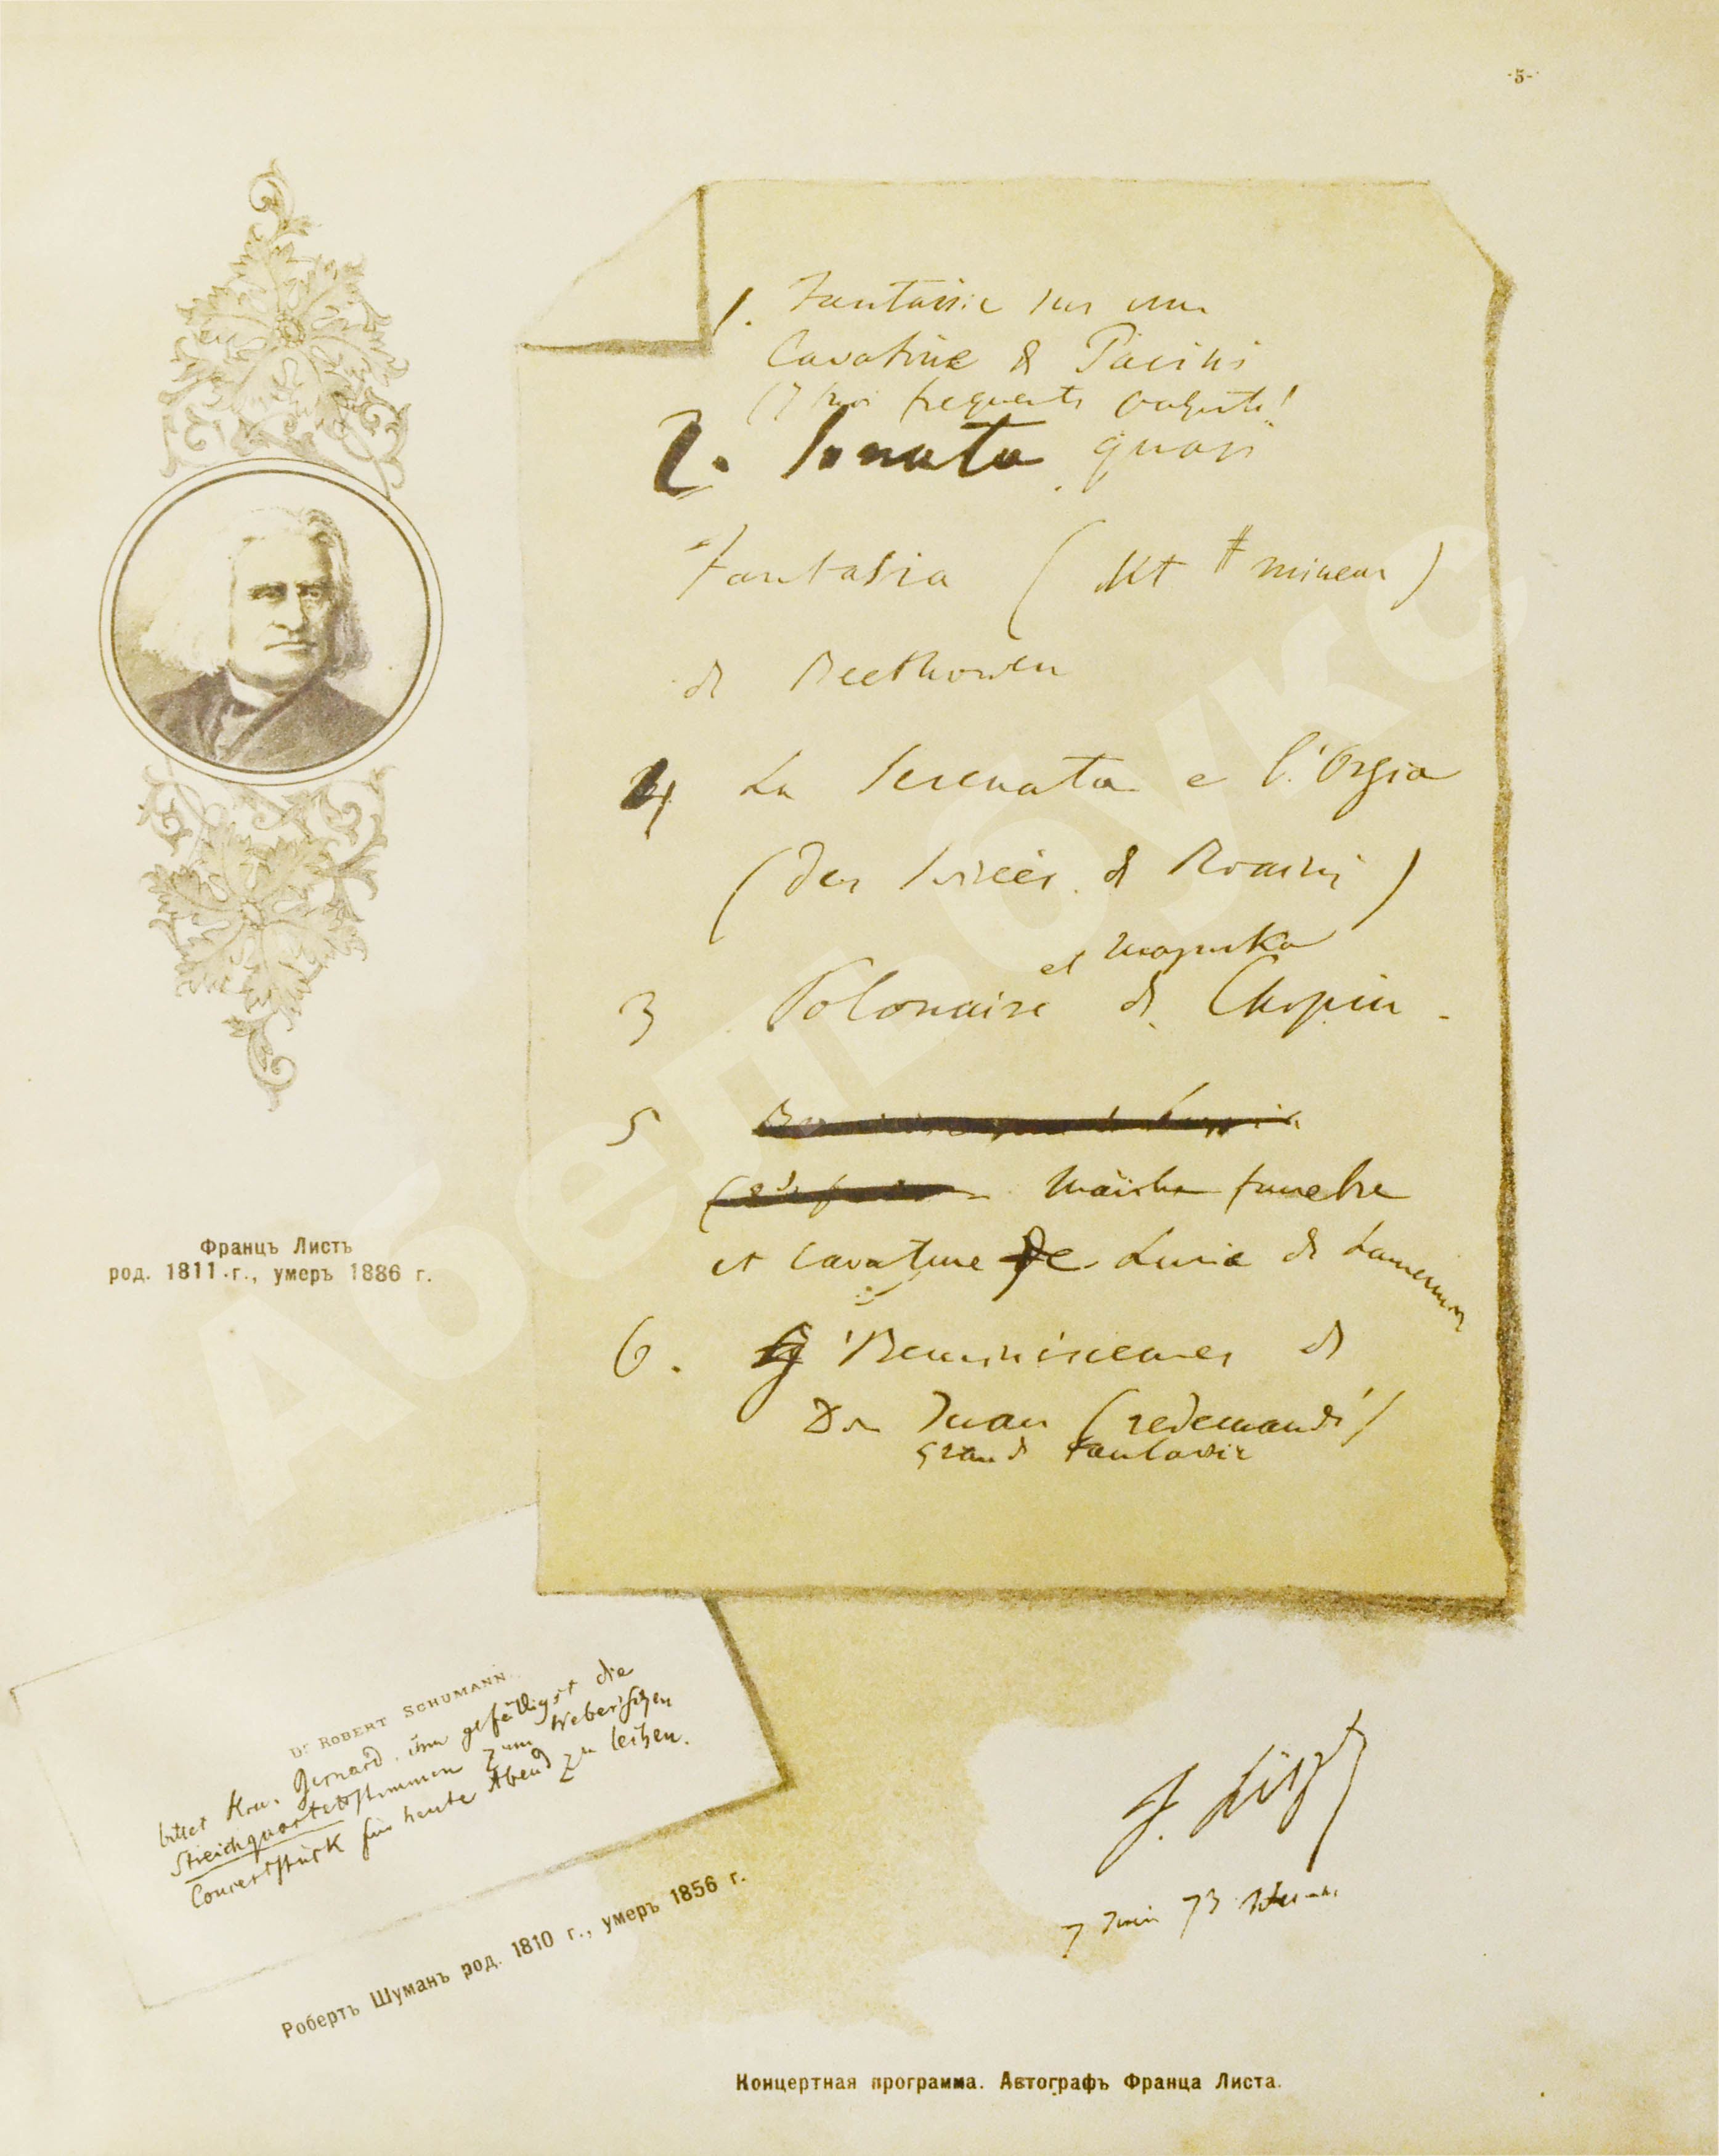 -5-
1. Fantaisie sur une
Cavatine de Pacini
(I tuoi frequenti
2. Sonata quasi
Fantasia (Ut # mineur)
de Beethowen
4 La Serenata e l'Orgia
(des Soirées de Rossini)
et Mazurka
3 Polonaise de Chopin -
5
Marche funebre
et Cavatine de Lucia de Lammermoor
6. Reminiscences de
Don Juan (redemandé)
Grande Fantaisie
Францъ Листъ
род. 1811 г., умеръ 1886 г.
Dr ROBERT SCHUMANN
bittet Hrn. Bernard, ihm gefälligst die
Streichquartettstimmen zum Weber'schen
Concertstück für heute Abend zu leihen.
Робертъ Шуманъ род. 1810 г., умеръ 1856 г.
F. Liszt
7 Juin 73
Концертная программа. Автографъ Франца Листа.
Абельбукс